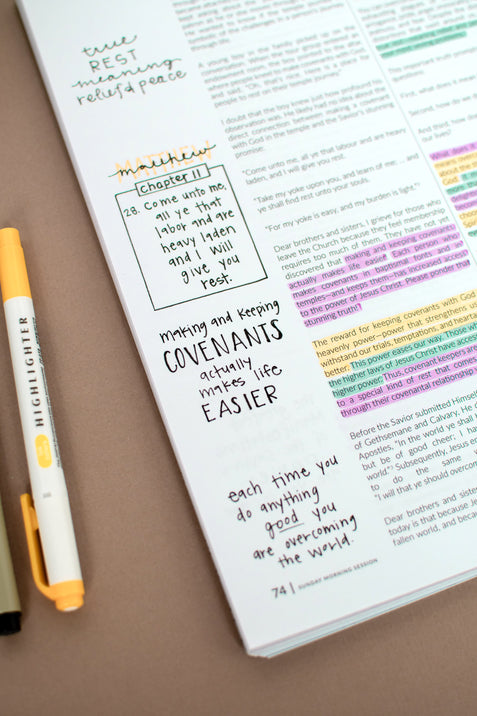 true
REST
meaning
relief & peace
MATTHEW
matthew
chapter 11
28. Come unto me,
all ye that
labor and are
heavy laden
and I will
give you
rest.
making and keeping
COVENANTS
actually
makes life
EASIER
each time you
do anything
good you
are overcoming
the world.
74 | SUNDAY MORNING SESSION
HIGHLIGHTER
A young boy in the family picked up the
"Oh, that's nice. Here is a
people to rest on their
I doubt that the boy knew just how profound his
observation was. He likely had no idea about the
direct connection between making a covenant
with God in the temple and the Savior's stunning
promise:
"Come unto me, all ye that labour and are heavy
laden, and I will give you rest.
"Take my yoke upon you, and learn of me; ... and
ye shall find rest unto your souls.
"For my yoke is easy, and my burden is light."
Dear brothers and sisters, I grieve for those who
leave the Church because they feel membership
requires too much of them. They have not yet
discovered that making and keeping covenants
actually makes life easier! Each person who
makes covenants in baptismal fonts and in
temples—and keeps them—has increased access
to the power of Jesus Christ. Please ponder that
stunning truth!
The reward for keeping covenants with God
heavenly power—power that strengthens us
withstand our trials, temptations, and heartac
better. This power eases our way. Those who
the higher laws of Jesus Christ have access
higher power. Thus, covenant keepers are
to a special kind of rest that comes
through their covenantal relationship
Before the Savior submitted Himself
of Gethsemane and Calvary, He d
Apostles, "In the world ye shall
but be of good cheer; I ha
world." Subsequently, Jesus en
to do the same w
"I will that ye should overcom
Dear brothers and sisters
today is that because Je
fallen world, and beca
This important truth promp
questions:
First, what does it mean
Second, how do we d
And third, how do
our lives?
What does it
means over
about the
God. It